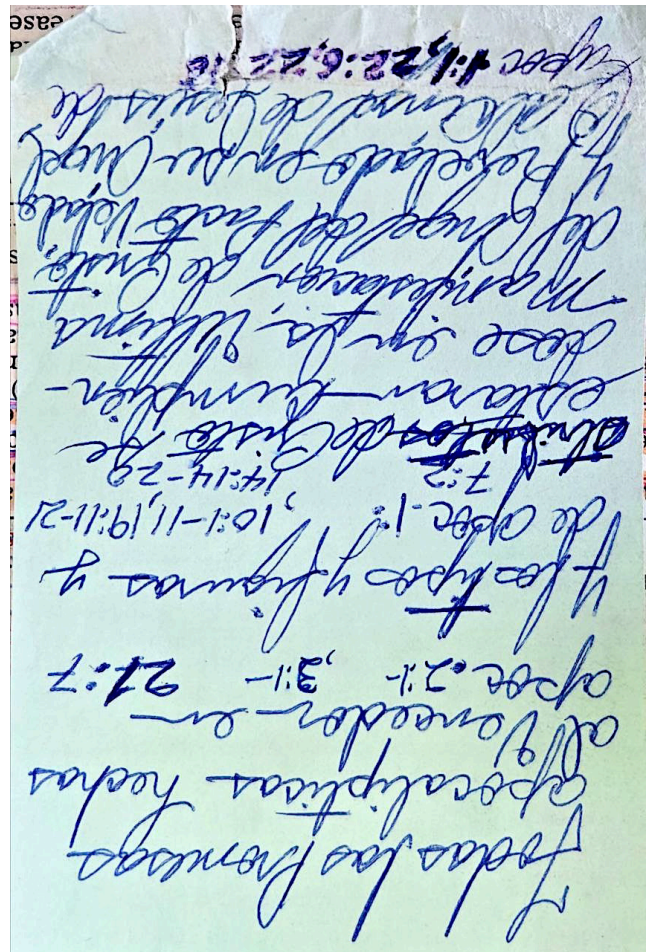 Todas las Promesas
apocalipticas hechas
al Vencedor en
apoc. 2:1- , 3:1- 21:7
Y los tipos y figuras y
de apoc-1: , 10:1-11, 19:11-21
7:2 14:14-20
atributos de Cristo se
estaran cumplien-
dose en la Ultima
Manifestacion de Cristo,
del Angel del Pacto Velado
y Revelado en su Angel
de Jesus de
Apoc 1:1, 22:6, 22:16